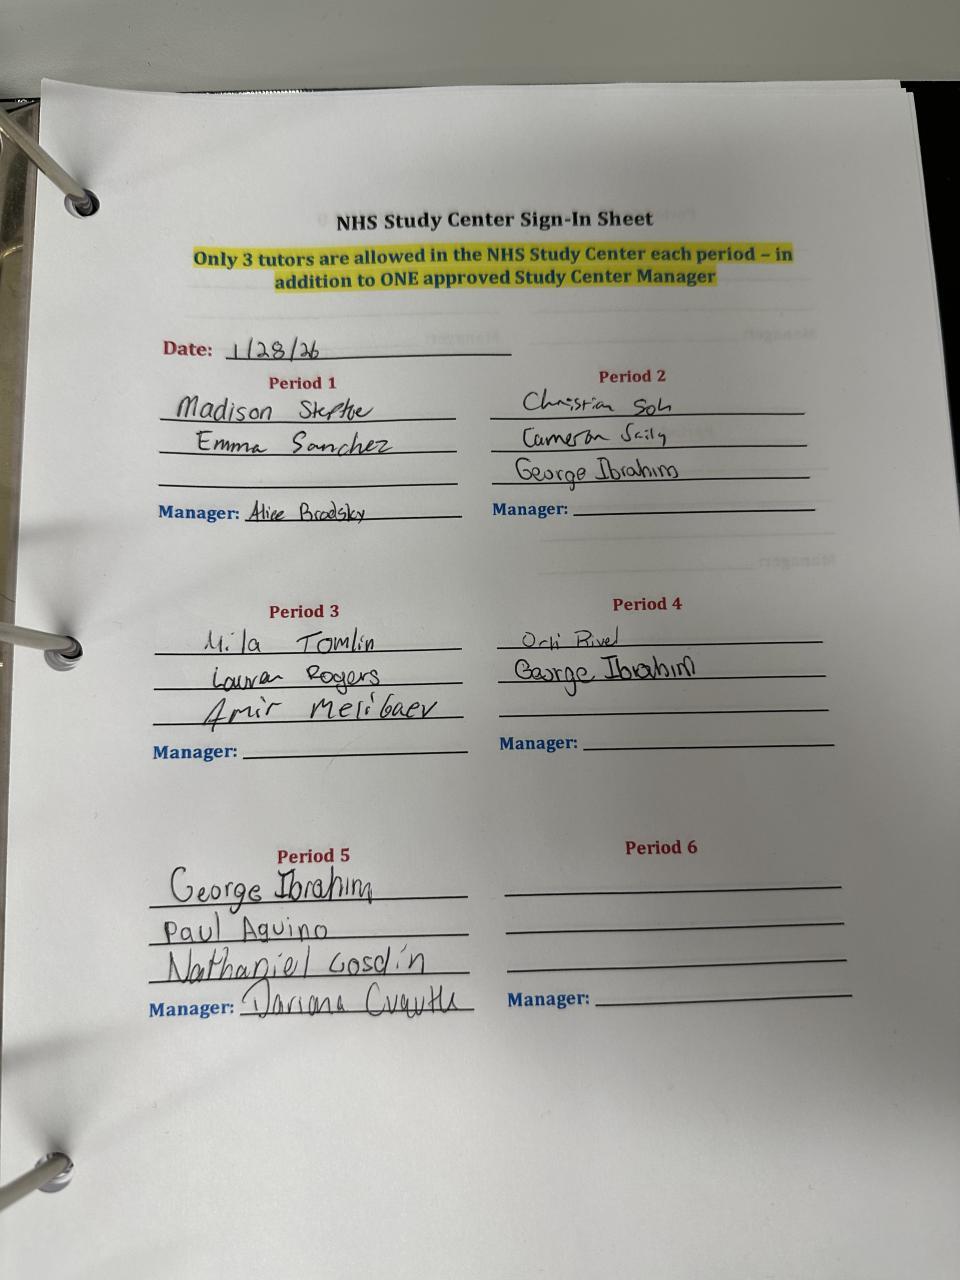 NHS Study Center Sign-In Sheet
Only 3 tutors are allowed in the NHS Study Center each period – in
addition to ONE approved Study Center Manager
Date: 1/28/26
Period 1
Madison Steptoe
Emma Sanchez
Manager: Alice Brodsky
Period 2
Christian Soh
Cameron
George Ibrahim
Manager:
Period 3
Mila Tomlin
Lauran Rogers
Amir Melibaev
Manager:
Period 4
George Ibrahim
Manager:
Period 5
George Ibrahim
Paul Aquino
Nathaniel Gosdin
Manager: Dariana
Period 6
Manager: